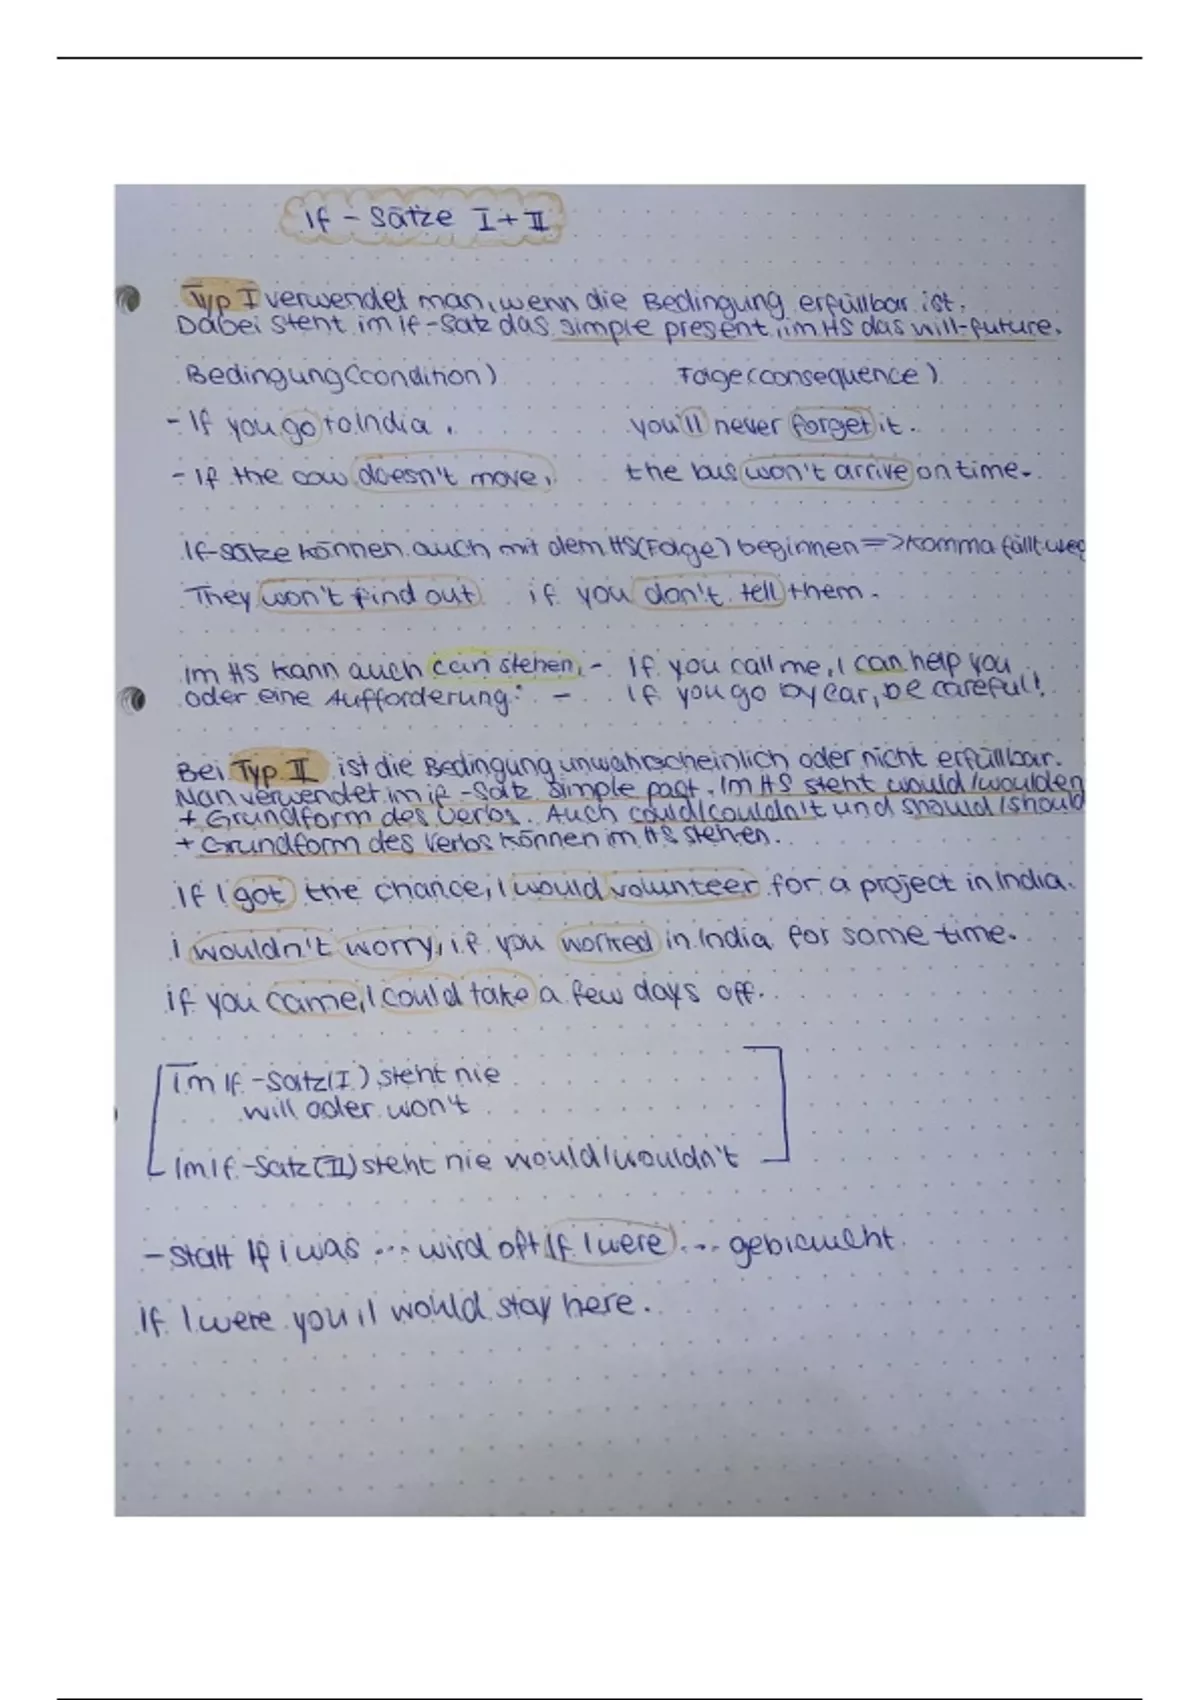 If - Sätze I + II
Typ I verwendet man, wenn die Bedingung erfüllbar ist.
Dabei steht im if-Satz das simple present, im HS das will-future.
Bedingung (condition) Folge (consequence)
- If you go to India, you'll never forget it.
- If the cow doesn't move, the bus won't arrive on time.
If-Sätze können auch mit dem HS (Folge) beginnen => Komma fällt weg
They won't find out if you don't tell them.
Im HS kann auch can stehen, - If you call me, I can help you
oder eine Aufforderung: - If you go by car, be careful!
Bei Typ II ist die Bedingung unwahrscheinlich oder nicht erfüllbar.
Man verwendet im if-Satz simple past. Im HS steht would/woulden
+ Grundform des Verbs. Auch could/couldn't und should/should
+ Grundform des Verbs können im HS stehen.
If I got the chance, I would volunteer for a project in India.
I wouldn't worry, if you worked in India for some time.
if you came, I could take a few days off.
Im If-Satz (I) steht nie
will oder won't
Im If-Satz (II) steht nie would/wouldn't
- statt If I was ... wird oft If I were ... gebraucht
If I were you, I would stay here.